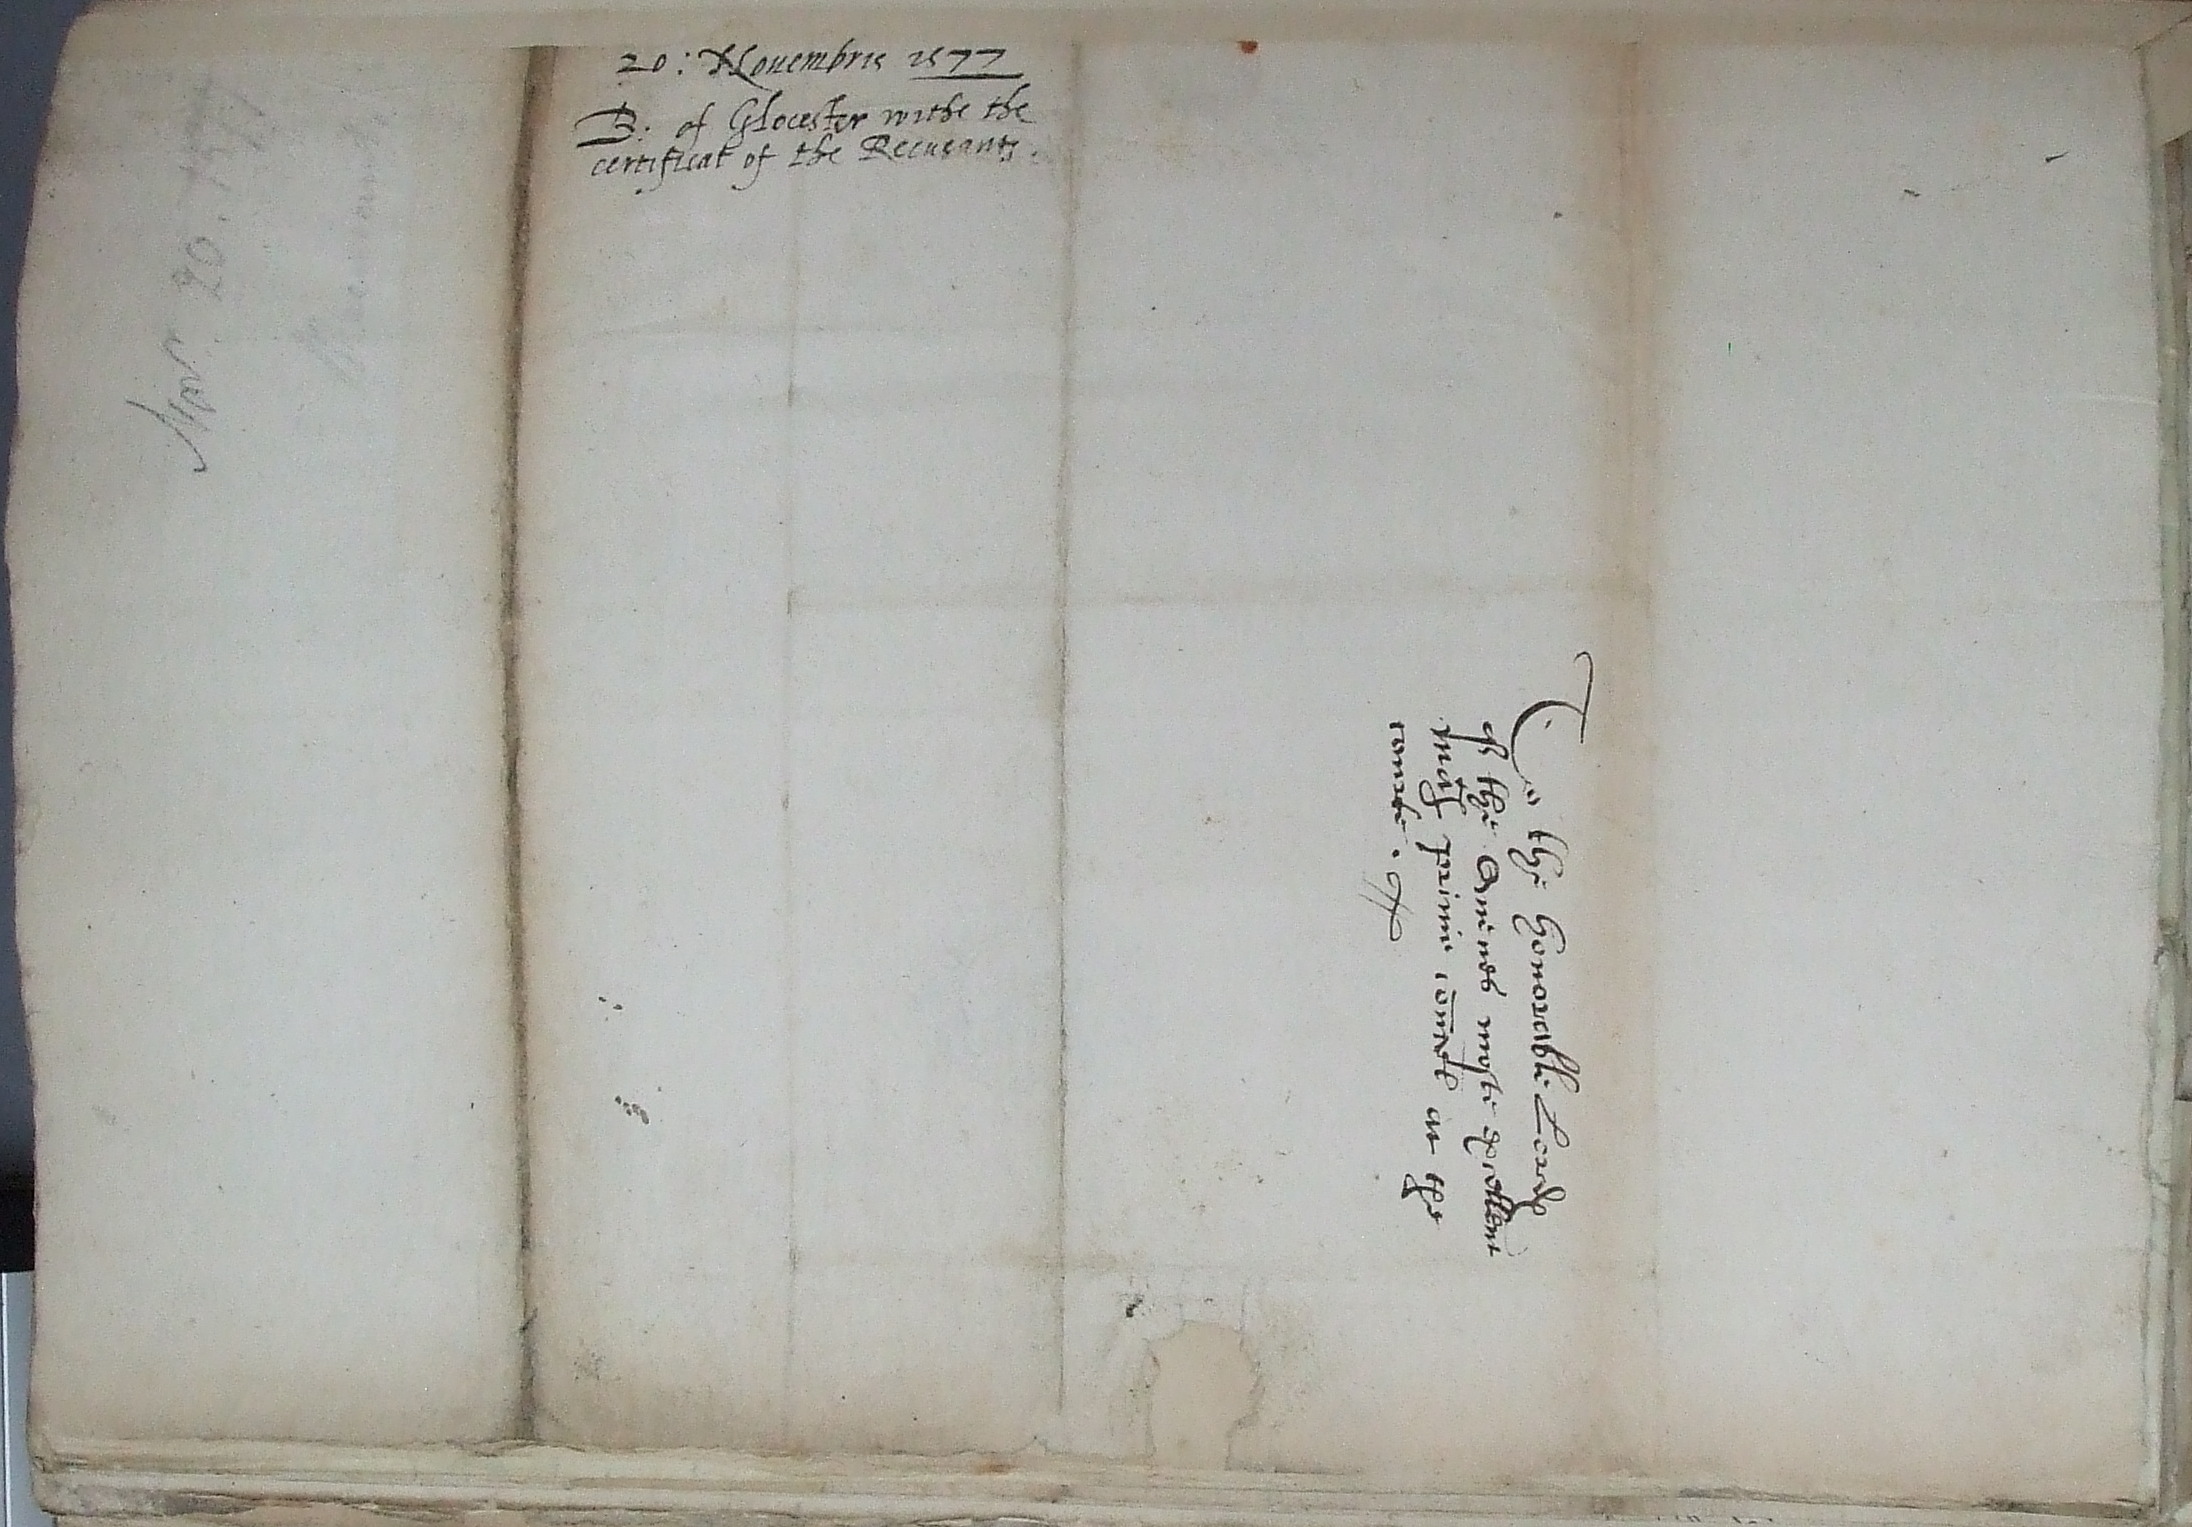 20: Nouembris 1577
B: of Glocester withe the
certificat of the Recusants.
To the honorable Lords
of the Quenes moste excellent
mats privie counsell at the
courte.
Nov. 20. 1577